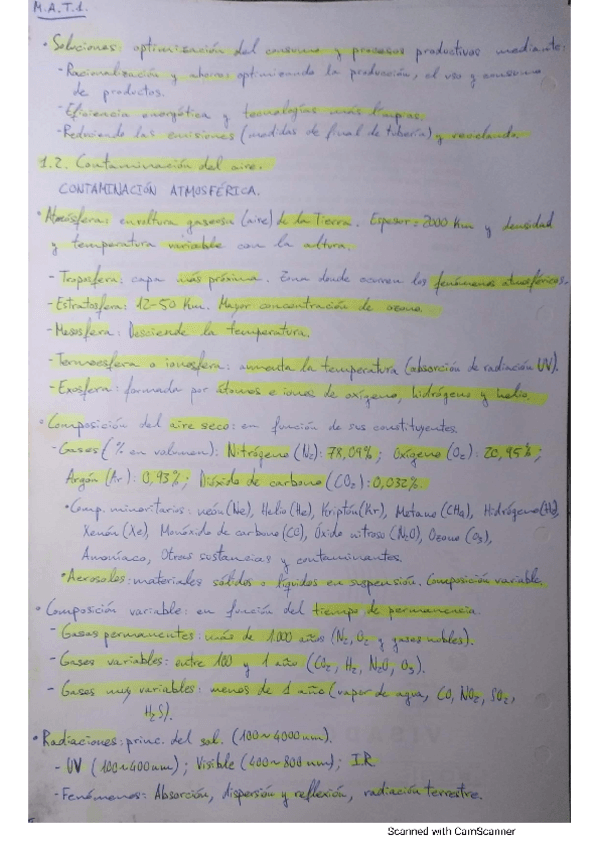 M.A.T.1.
• Soluciones: optimización del consumo y procesos productivos mediante:
- Racionalización y ahorro, optimizando la producción, el uso y consumo
de productos.
- Eficiencia energética y tecnologías más limpias.
- Reduciendo las emisiones (medidas de final de tubería) y reciclando.
1.2. Contaminación del aire.
CONTAMINACIÓN ATMOSFÉRICA.
• Atmósfera: envoltura gaseosa (aire) de la Tierra. Espesor = 2000 Km y densidad
y temperatura variable con la altura.
- Troposfera: capa más próxima. Zona donde ocurren los fenómenos atmosféricos.
- Estratosfera: 12-50 Km. Mayor concentración de ozono.
- Mesosfera: Desciende la temperatura.
- Termoesfera o ionosfera: aumenta la temperatura (absorción de radiación UV).
- Exosfera: formada por átomos e iones de oxígeno, hidrógeno y helio.
• Composición del aire seco: en función de sus constituyentes.
- Gases (% en volumen): Nitrógeno (N2): 78,09%; Oxígeno (O2): 20,95%;
Argón (Ar): 0,93%; Dióxido de carbono (CO2): 0,032%.
• Comp. minoritarios: neón (Ne), Helio (He), Kriptón (Kr), Metano (CH4), Hidrógeno (H2)
Xenón (Xe), Monóxido de carbono (CO), Óxido nitroso (N2O), Ozono (O3),
Amoníaco, Otras sustancias y contaminantes.
• Aerosoles: materiales sólidos o líquidos en suspensión. Composición variable.
• Composición variable: en función del tiempo de permanencia.
- Gases permanentes: más de 1.000 años (N2, O2 y gases nobles).
- Gases variables: entre 100 y 1 año (CO2, H2, N2O, O3).
- Gases muy variables: menos de 1 año (vapor de agua, CO, NO2, SO2,
H2S).
• Radiaciones: princ. del sol. (100~4000 nm).
- UV (100~400 nm); Visible (400~800 nm); IR
- Fenómenos: Absorción, dispersión y reflexión, radiación terrestre.
Scanned with CamScanner